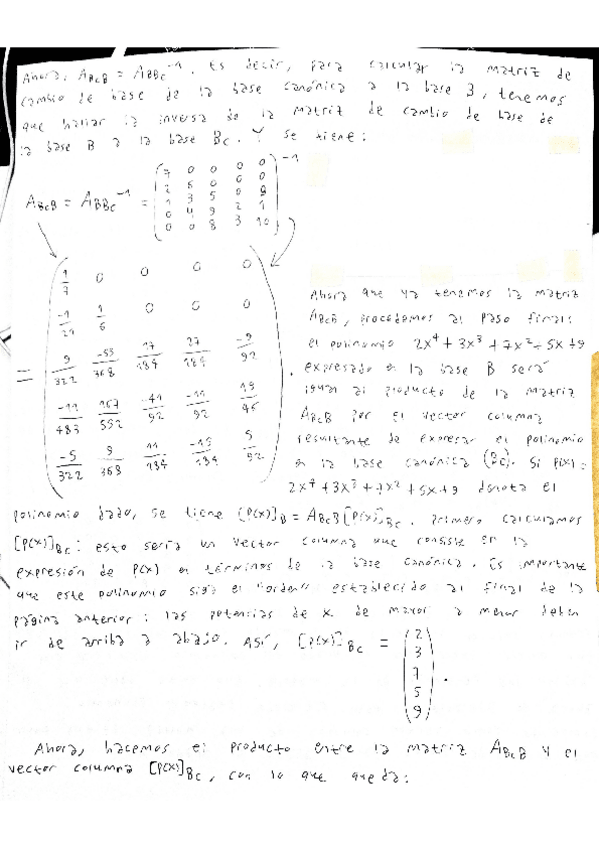 Ahora, A_BcB = A_BBc^-1. Es decir, para calcular la matriz de
cambio de base de la base canónica a la base B, tenemos
que hallar la inversa de la matriz de cambio de base de
la base B a la base Bc. Y se tiene:
A_BcB = A_BBc^-1 =
7 0 0 0 0
2 6 0 0 0
1 3 5 0 8
0 4 9 2 1
0 0 8 3 10
-1
=
1/7 0 0 0 0
-1/21 1/6 0 0 0
9/322 -55/368 17/184 27/184 -9/92
-11/483 167/552 -41/92 -11/92 19/46
-5/322 9/368 11/184 -15/184 5/92
Ahora que ya tenemos la matriz
A_BcB, procedemos al paso final:
el polinomio 2x^4+3x^3+7x^2+5x+9
expresado en la base B será
igual al producto de la matriz
A_BcB por el vector columna
resultante de expresar el polinomio
en la base canónica (Bc). Si P(x)=
2x^4+3x^3+7x^2+5x+9 denota el
polinomio dado, se tiene [P(x)]_B = A_BcB[P(x)]_Bc. Primero calculamos
[P(x)]_Bc: esto sería un vector columna que consiste en la
expresión de P(x) en términos de la base canónica. Es importante
que este polinomio siga el "orden" establecido al final de la
página anterior: las potencias de x de mayor a menor deben
ir de arriba a abajo. Así, [P(x)]_Bc =
2
3
7
5
9
.
Ahora, hacemos el producto entre la matriz A_BcB y el
vector columna [P(x)]_Bc, con lo que queda: